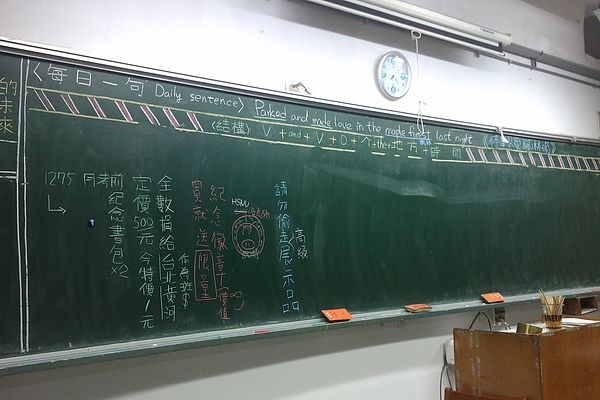 的未來
〈每日一句 Daily sentence〉 Parked and made love in the made forest last night
〈結構〉 V + and + V + O + 介 + the + 地方 + 時間
1275
月考前
紀念書包x2
定價500元 今特價1元
全數捐給台北黃河
作為班$
買就送限量
紀念徽章
價值∞
HSNU
請勿偷走
高級
展示品